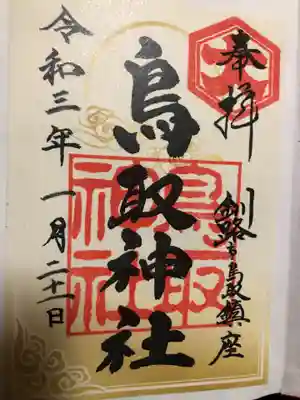 奉拝
釧路市鳥取鎮座
鳥取神社
令和三年一月二十一日
鳥取神社